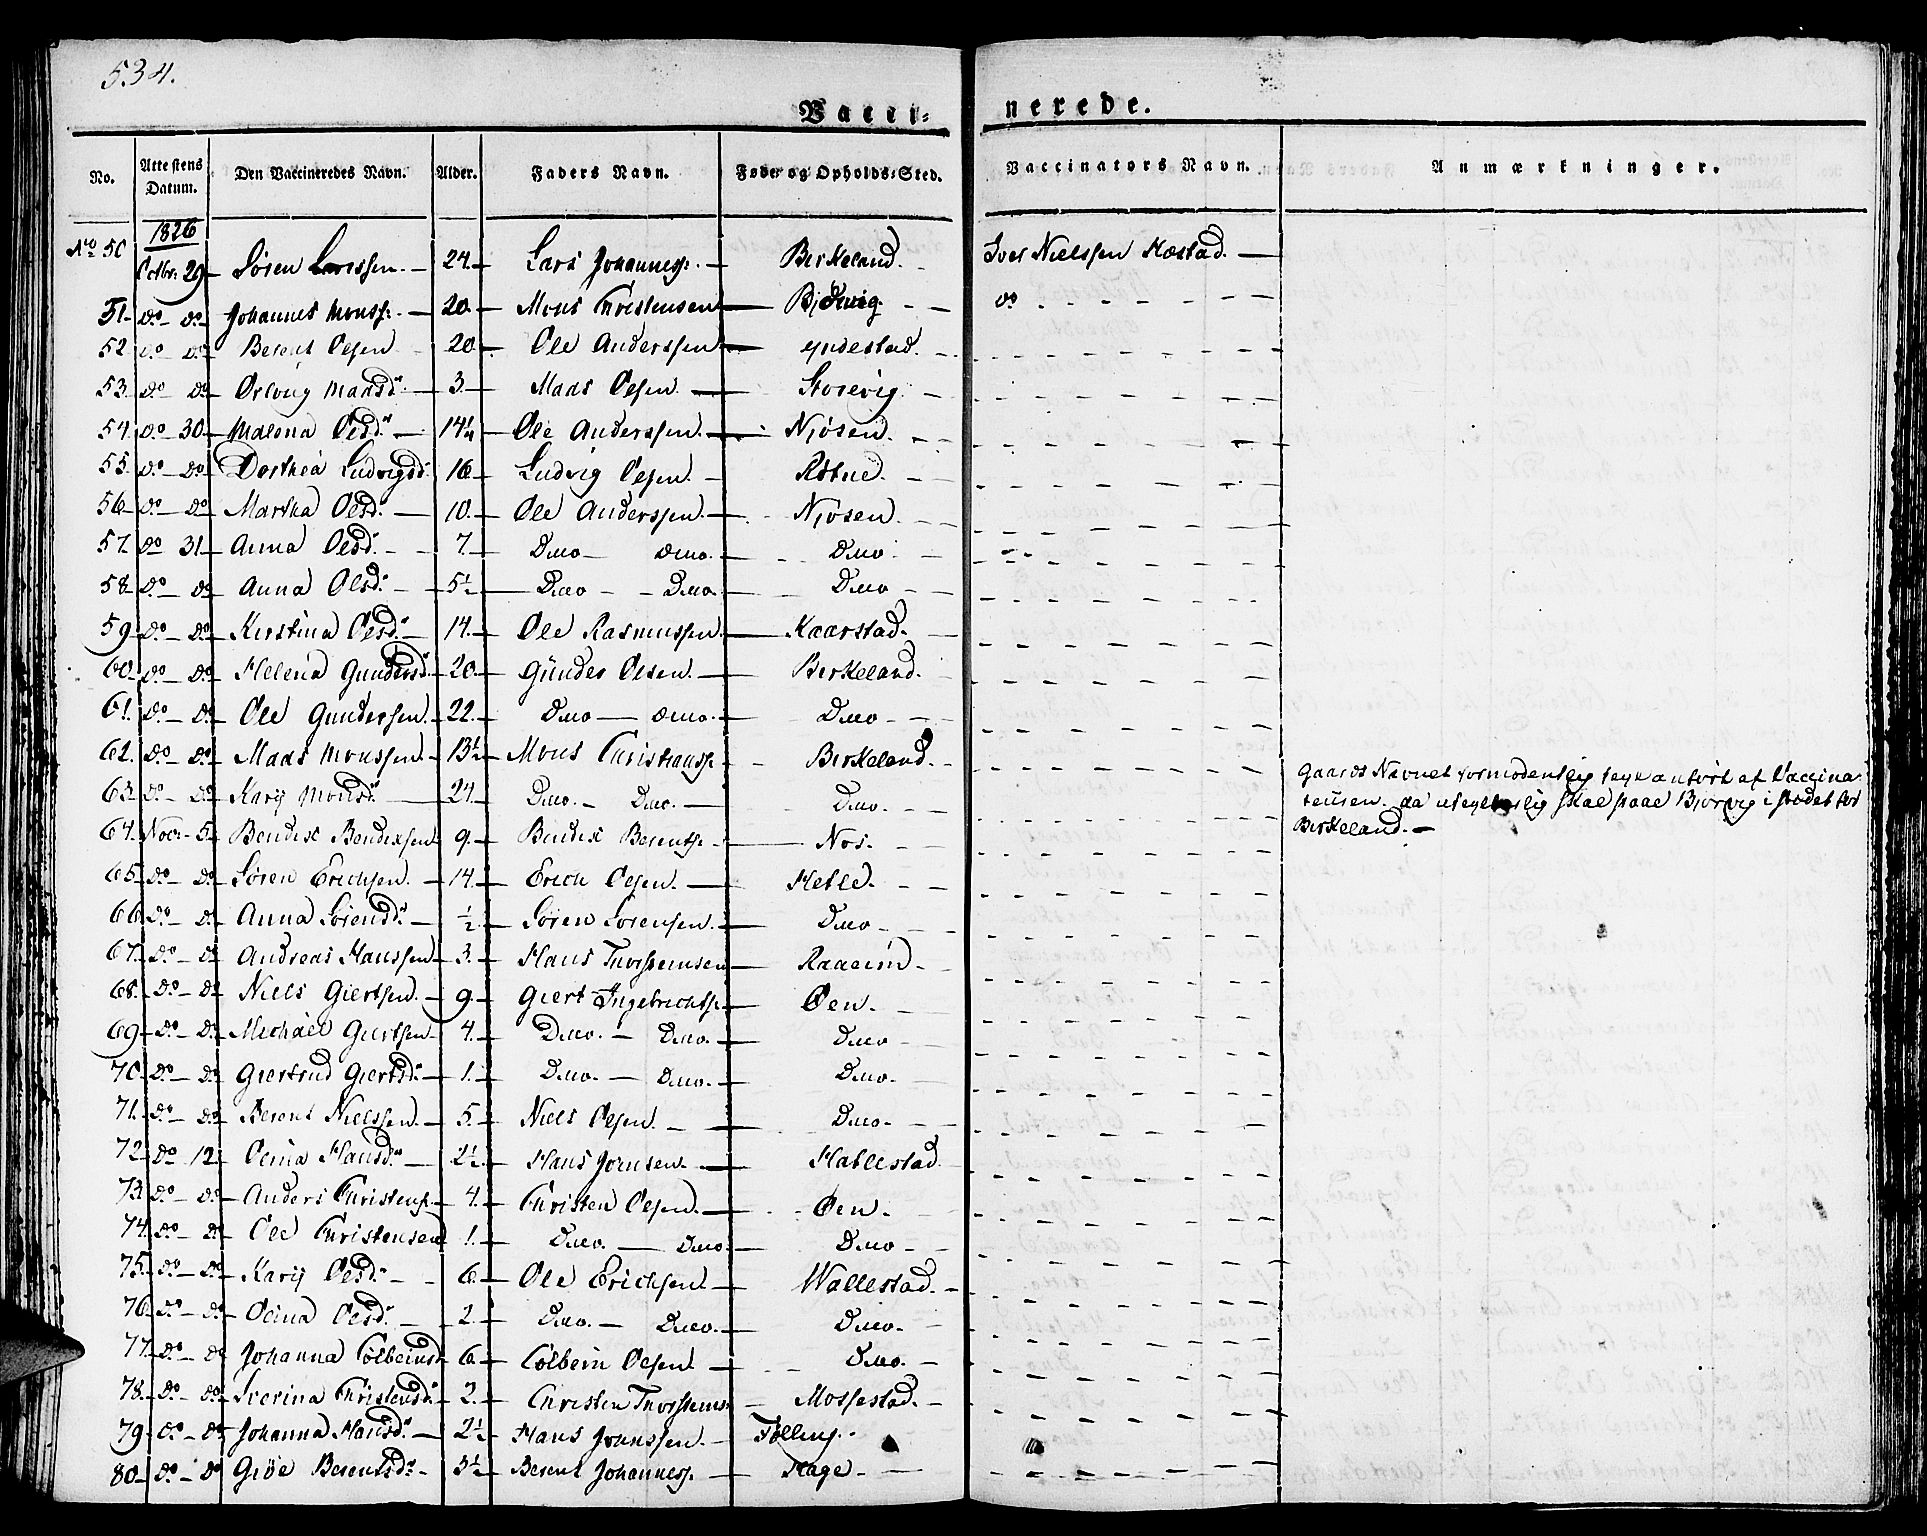 534.
Vacci=
nerede.
No. Attestens Datum. Den Vaccineredes Navn. Alder. Faders Navn. Føde- og Opholds-Sted. Vaccinators Navn. Anmærkninger.
1826
No 50 Octbr: 29 Søren Larssen. 24. Lars Johanness: Birkeland. Iver Nielssen Kæstad.
51. do do Johannes Monss: 20. Mons Christensen Bjørvig do
52 do do Berent Olsen 20 Ole Anderssen Yndestad.
53. do do Ørlvig Maasdr 3 Maas Olsen Storevig
54. do 30 Malena Olsdr 14¼ Ole Anderssen. Niøsen.
55. do do Dorthea Ludvigsd: 16 Ludvig Olsen. Røtne.
56 do do Martha Olsdr 10. Ole Anderssen. Niøsen.
57. do 31 Anna Olsd: 7. Ditto Ditto. Ditto
58 do do Anna Olsd: 5½ Ditto Ditto Ditto
59 do do Kirstina Olsdr. 14. Ole Rasmussen Kaarstad.
60. do do Helena Gundersd: 20 Gunder Olsen. Birkeland.
61. do do Ole Gundersen. 22. Ditto Ditto. Ditto
62. do do Maas Monssen. 13½ Mons Christianss: Birkeland.
63. do do Karij Monsdr 24 Ditto. Ditto. Ditto.
Gaards Navnet formodentlig feyl anført af Vaccina
teuren. da ufeylbarlig skal staae Bjørvig i stædet for
Birkeland.
64. Novr. 5 Bendix Bendixsen 9. Bendix Berents: Nos.
65. do do Søren Erichsen. 14. Erich Olsen. Helle.
66 do do Anna Sørensdr ½ Søren Sørensen. Ditto
67. do do Andreas Hanssen 3. Hans Thorsteinsen
68. do do Niels Giertsen. 9. Giert Ingebrechts: Øen.
69 do do Michael Giertsen 4. Ditto. Ditto. Ditto
70. do do Giertrud Giertsdr 1. Ditto. Ditto. Ditto.
71. do do Berent Nielssen. 5. Niels Olsen. Ditto.
72 do 12. Olina Hansdr 2½ Hans Jørnsen. Hallestad
73 do do Anders Christens: 4. Christen Olsen. Øen.
74. do do Ole Christensen 1. Ditto. Ditto. Ditto
75. do do Karij Olsd: 6. Ole Erichsen. Wallestad.
76. do do Olina Olsdr 2. Ditto. Ditto. Ditto.
77. do do Johanna Colbeinsd 6. Colbein Olsen Ditto.
78. do do Severina Christensdr 2. Christen Thorsteins: Mossestad.
79 do do Johanna Hansdr 2½ Hans Johnssen. Tølling.
80 do do Giøe Berentsdr 3½ Berent Johanness. Hage